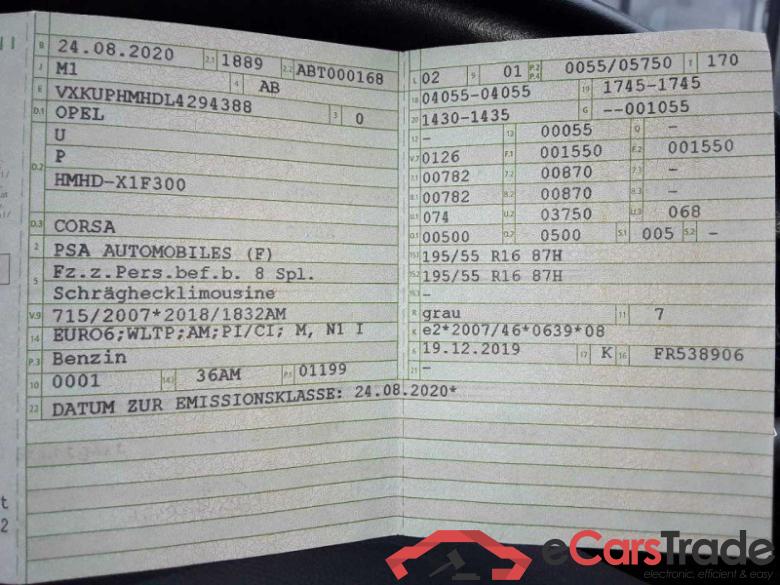 B 24.08.2020 2.1 1889 2.2 ABT000168
J M1 4 AB
E VXKUPHMHDL4294388
D.1 OPEL 3 0
U
D.2 P
HMHD-X1F300
D.3 CORSA
2 PSA AUTOMOBILES (F)
5 Fz.z.Pers.bef.b. 8 Spl.
Schräghecklimousine
V.9 715/2007*2018/1832AM
14 EURO6;WLTP;AM;PI/CI; M, N1 I
P.3 Benzin
10 0001 14.1 36AM P.1 01199
22 DATUM ZUR EMISSIONSKLASSE: 24.08.2020*
L 02 9 01 P.2 P.4 0055/05750 T 170
18 04055-04055 19 1745-1745
20 1430-1435 G --001055
12 - 13 00055 Q -
V.7 0126 F.1 001550 F.2 001550
7.1 00782 7.2 00870 7.3 -
8.1 00782 8.2 00870 8.3 -
U.1 074 U.2 03750 U.3 068
O.1 00500 O.2 0500 S.1 005 S.2 -
15.1 195/55 R16 87H
15.2 195/55 R16 87H
15.3 -
R grau 11 7
K e2*2007/46*0639*08
6 19.12.2019 17 K 16 FR538906
21 -
eCarsTrade
electronic, efficient & easy